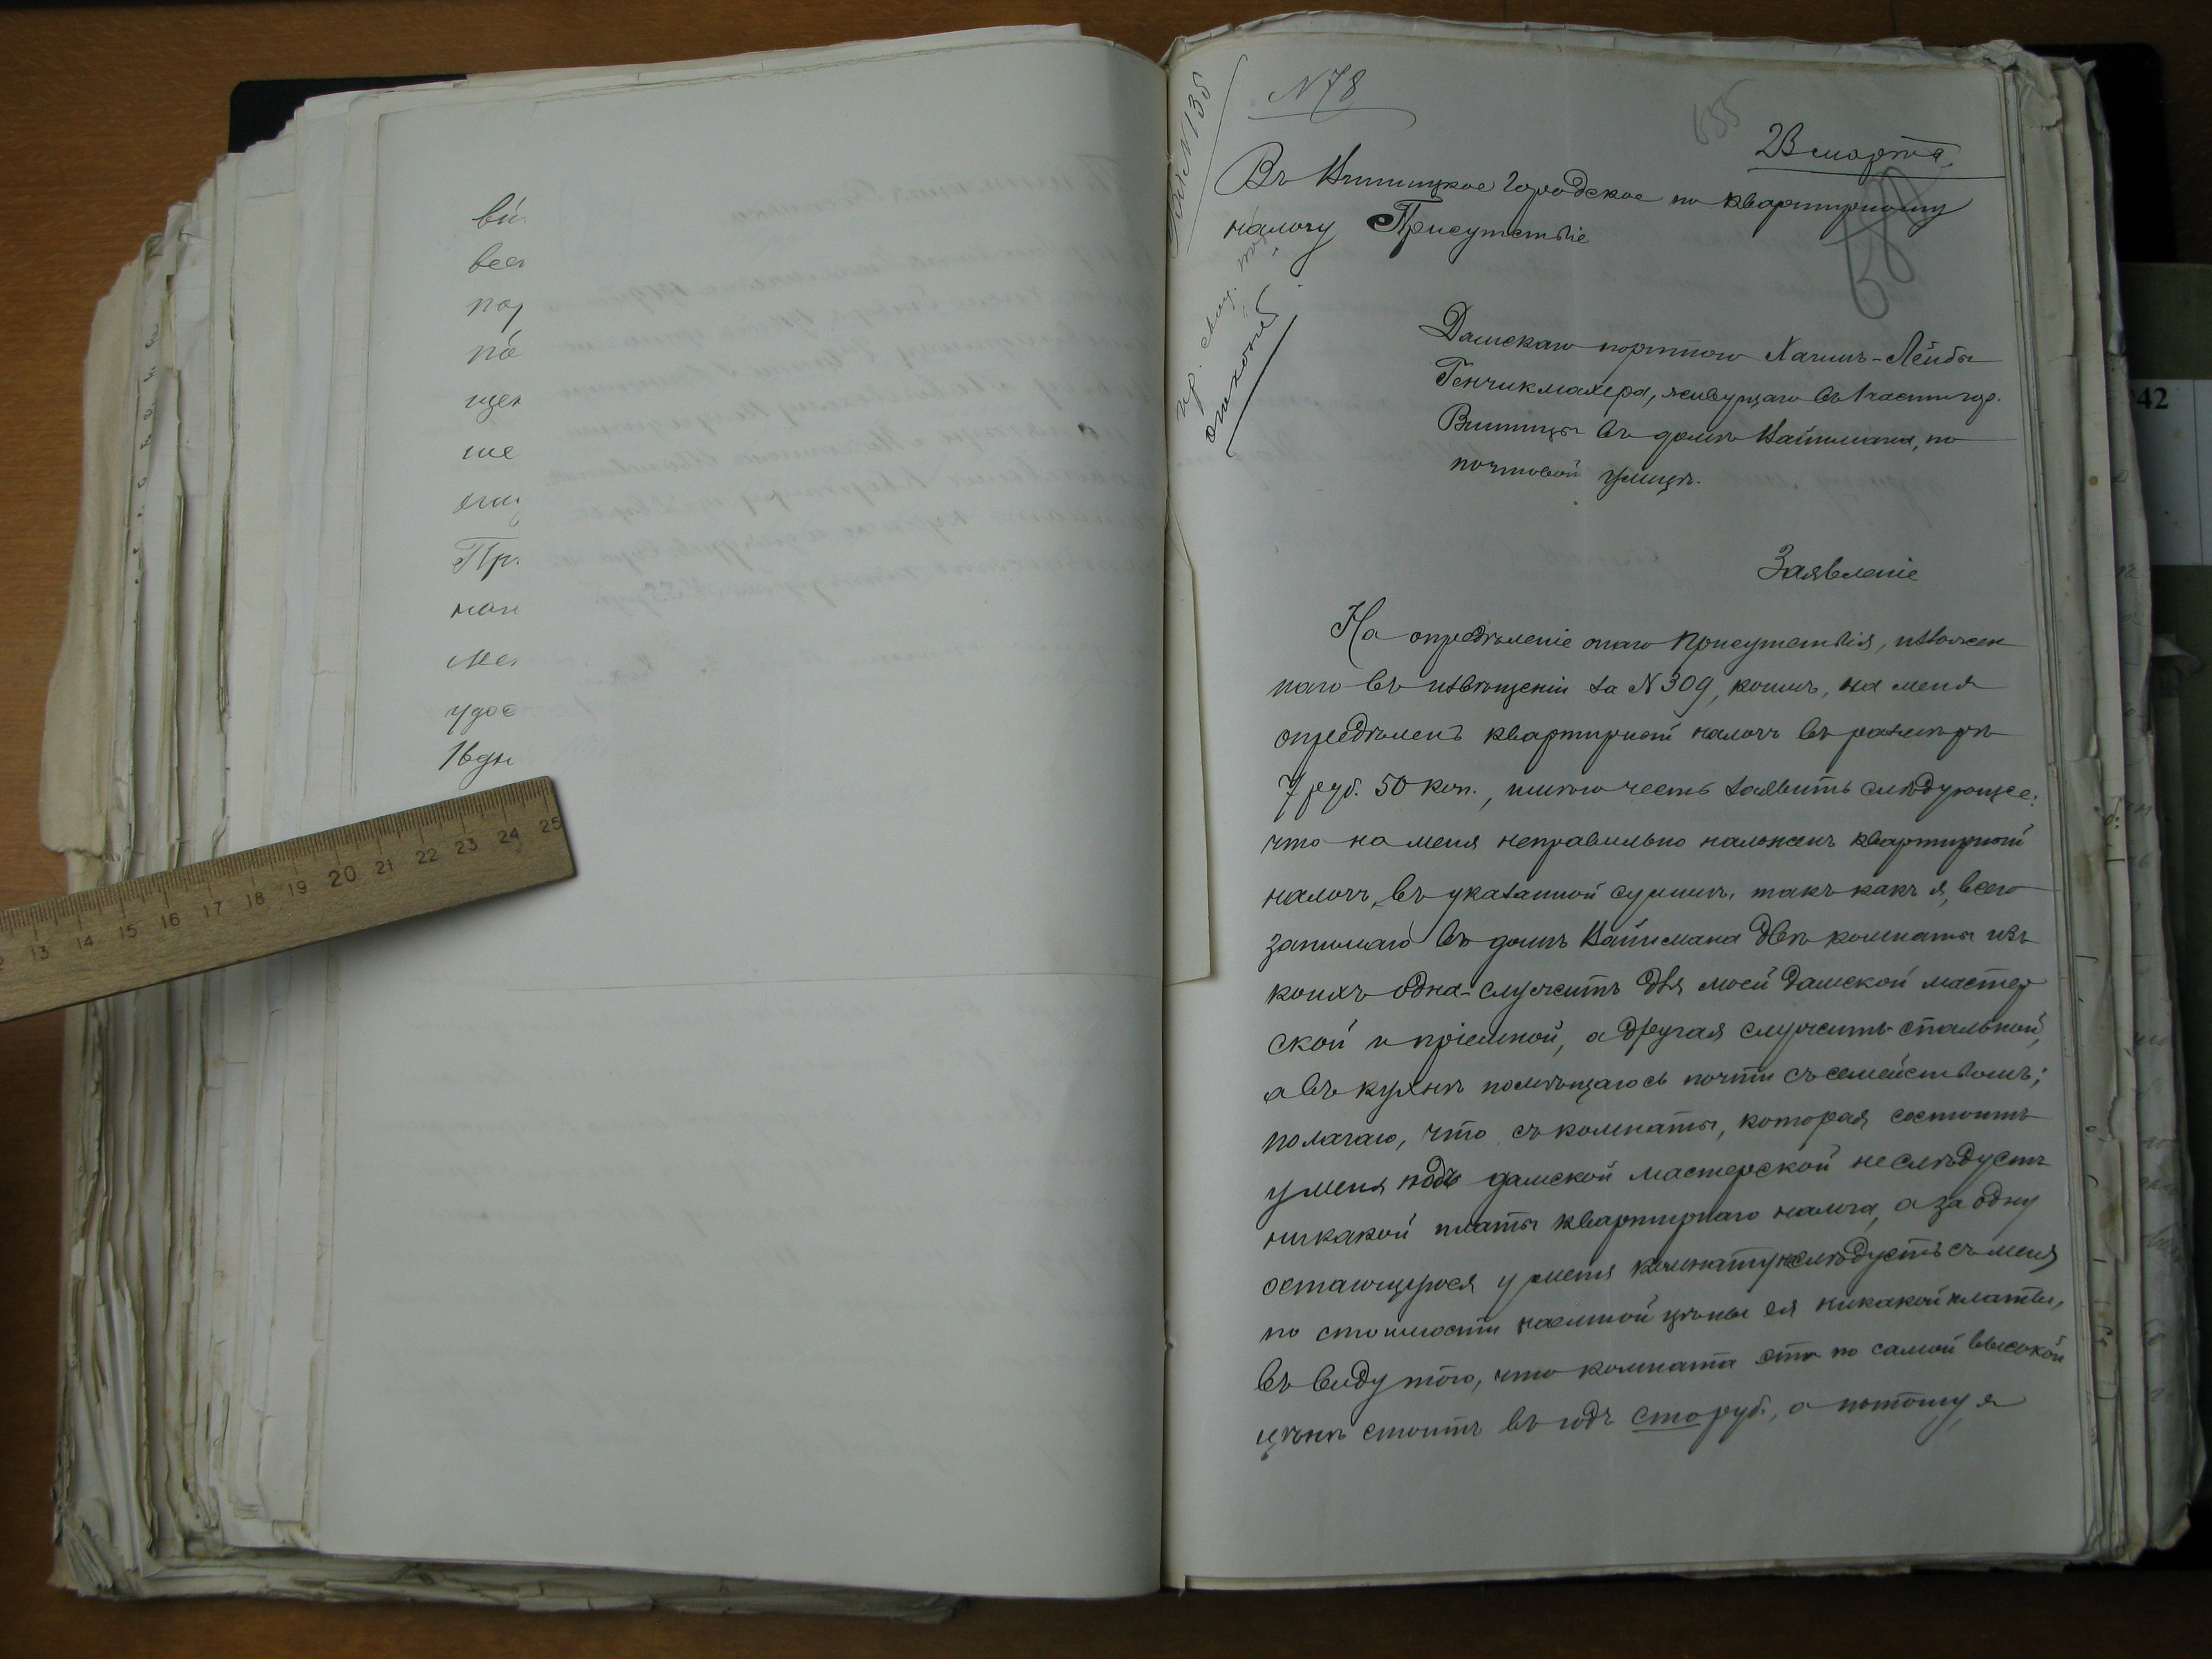 ви
вес
пор
по
щен
ше
Пр.
мен
удос
12 13 14 15 16 17 18 19 20 21 22 23 24 25
N 78
655
23 марта
Въ Винницкое Городское по квартирному
налогу Присутствіе
Дамскаго портного Хаимъ-Лейбы
Генчикмахера, живущаго въ 1 части гор.
Винницы въ домѣ Вайнмана, по
почтовой улицѣ.
Заявленіе
На опредѣленіе онаго Присутствія, изложен
наго въ извѣщеніи за N 309, коимъ, на меня
опредѣленъ квартирный налогъ въ размѣрѣ
7 руб. 50 коп., имѣю честь заявить слѣдующее:
что на меня неправильно наложенъ квартирный
налогъ, въ указанной суммѣ, такъ какъ я, всего
занимаю въ домѣ Вайнмана двѣ комнаты изъ
коихъ одна служитъ для моей дамской мастер
ской и пріемной, а другая служитъ спальной,
а въ кухнѣ помѣщаюсь почти съ семействомъ;
полагаю, что съ комнаты, которая состоитъ
у меня подъ дамской мастерской не слѣдуетъ
никакой платы квартирнаго налога, а за одну
остающуюся у меня комнату не слѣдуетъ съ меня
по стоимости наемной цѣны ея никакой платы,
въ виду того, что комната эта по самой высокой
цѣнѣ стоитъ въ годъ сто руб., а потому я
42